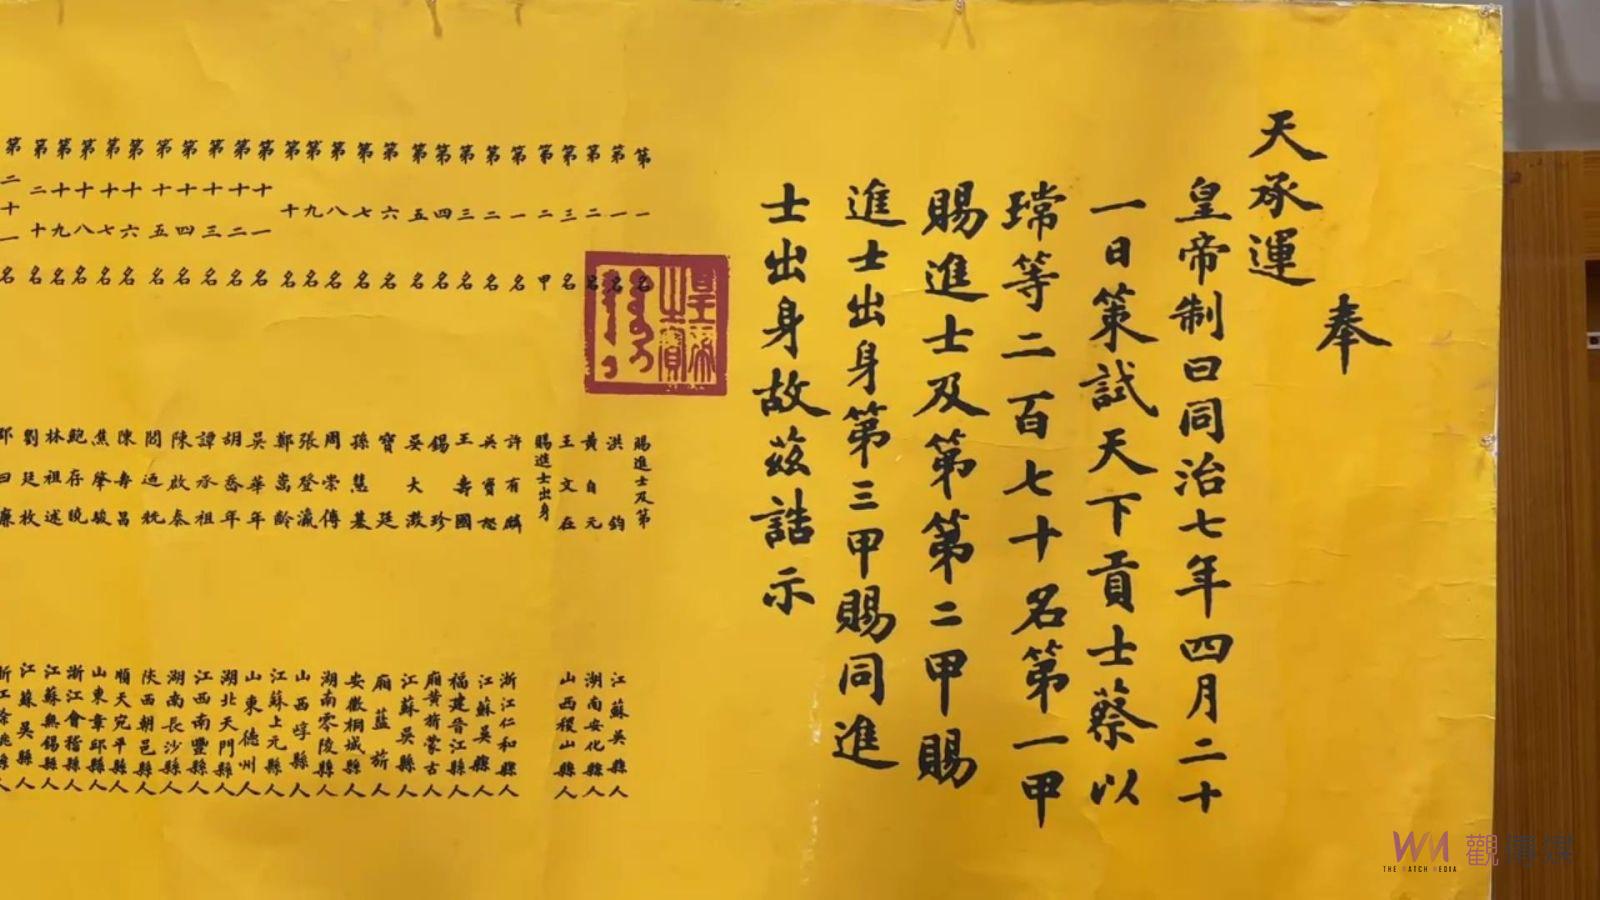 奉
天承運
皇帝制曰同治七年四月二十
一日策試天下貢士蔡以
瑺等二百七十名第一甲
賜進士及第第二甲賜
進士出身第三甲賜同進
士出身故茲誥示
皇帝之寶
第一甲 賜進士及第
第一名 洪鈞 江蘇吳縣人
第二名 黃自元 湖南安化縣人
第三名 王文在 山西稷山縣人
第二甲 賜進士出身
第一名 許有麟 浙江仁和縣人
第二名 吳寶恕 江蘇吳縣人
第三名 王壽國 福建晉江縣人
第四名 錫珍 廂黃旂蒙古
第五名 晏大 江蘇吳縣人
第六名 寶廷 廂藍旂人
第七名 孫慧基 安徽桐城縣人
第八名 周崇傳 湖南零陵縣人
第九名 張登瀛 山西崞縣人
第十名 鄭嵩齡 江蘇上元縣人
第十一名 吳華年 山東德州人
第十二名 胡喬年 湖北天門縣人
第十三名 譚承祖 江西南豐縣人
第十四名 陳啟泰 湖南長沙縣人
第十五名 閻迺兟 陝西朝邑縣人
第十六名 陳壽昌 順天宛平縣人
第十七名 焦肇駿 山東章邱縣人
第十八名 鮑存曉 浙江會稽縣人
第十九名 林祖述 江蘇無錫縣人
第二十名 劉廷枚 江蘇吳縣人
第二十一名 邵曰濂 浙江餘姚縣人
WM 觀傳媒
THE WATCH MEDIA